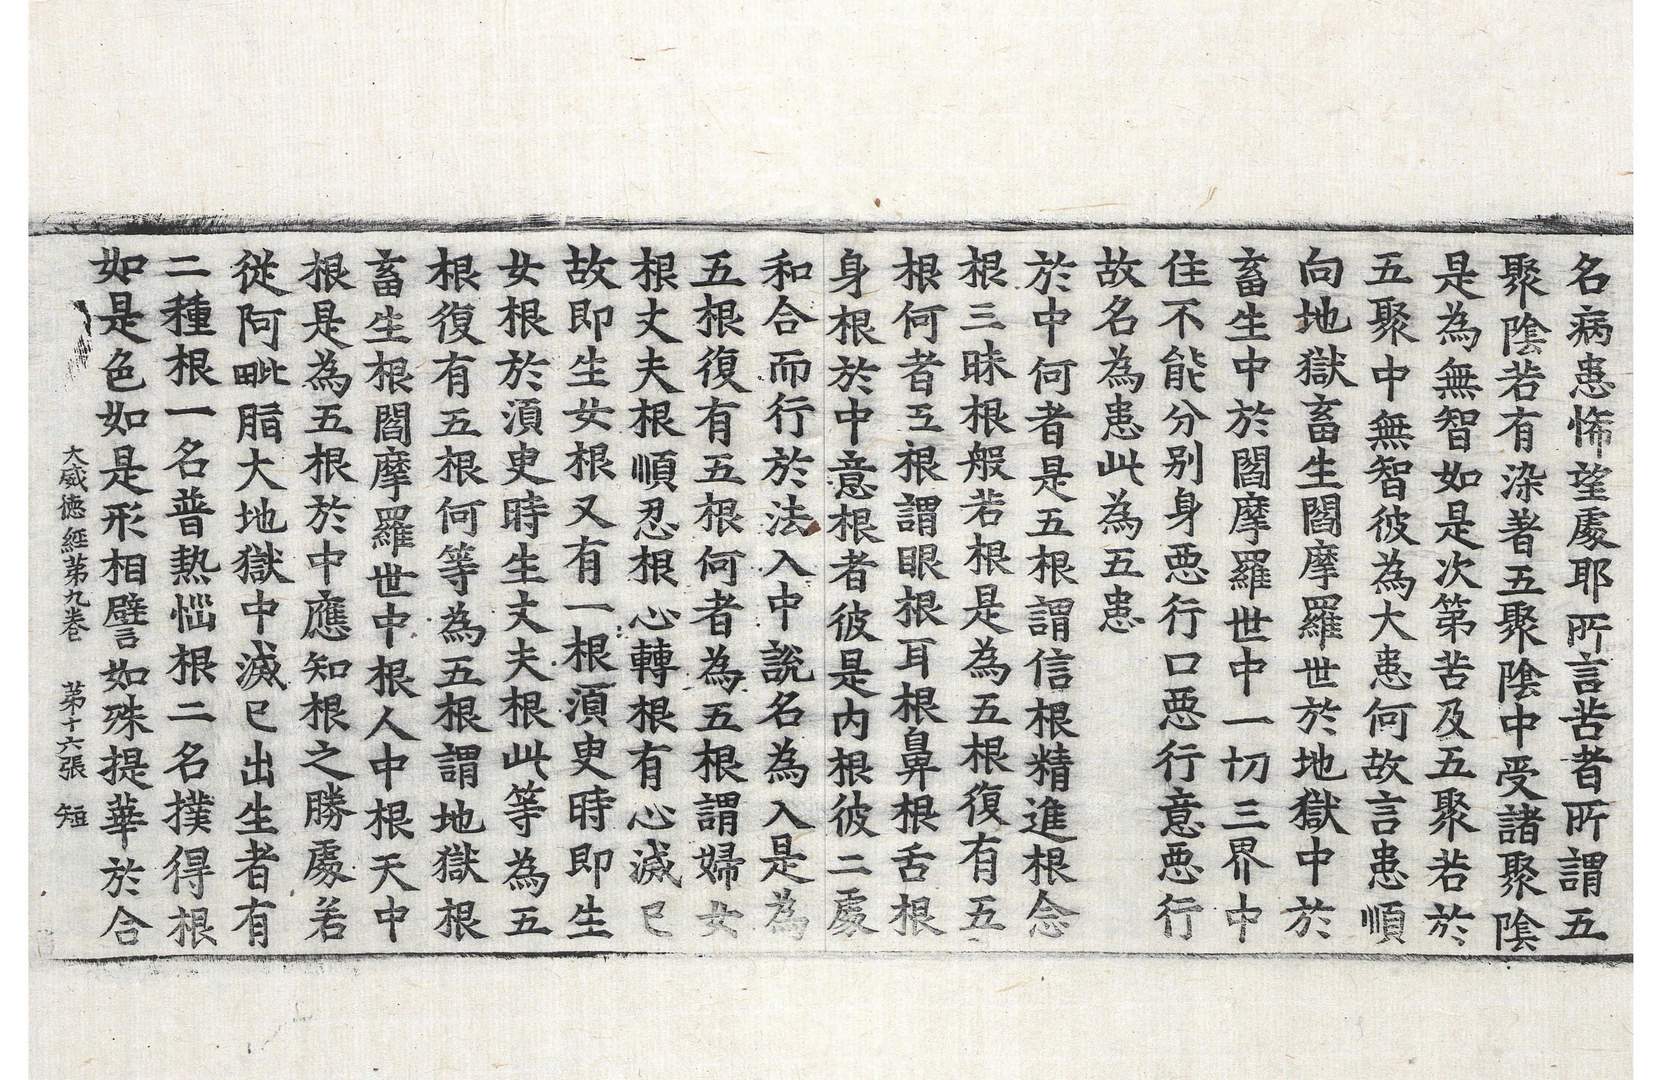 名病患悕望處耶所言苦者所謂五
聚陰若有染著五聚陰中受諸聚陰
是為無智如是次第苦及五聚若於
五聚中無智彼為大患何故言患順
向地獄畜生閻摩羅世於地獄中於
畜生中於閻摩羅世中一切三界中
住不能分別身惡行口惡行意惡行
故名為患此為五患
於中何者是五根謂信根精進根念
根三昧根般若根是為五根復有五
根何者五根謂眼根耳根鼻根舌根
身根於中意根者彼是內根彼二處
和合而行於法入中說名為入是為
五根復有五根何者為五根謂婦女
根丈夫根順忍根心轉根有心滅已
故即生女根又有一根須臾時即生
女根於須臾時生丈夫根此等為五
根復有五根何等為五根謂地獄根
畜生根閻摩羅世中根人中根天中
根是為五根於中應知根之勝處若
從阿毗脂大地獄中滅已出生者有
二種根一名普熱惱根二名撲得根
如是色如是形相譬如殊提華於合
大威德經第九卷 第十六張 短